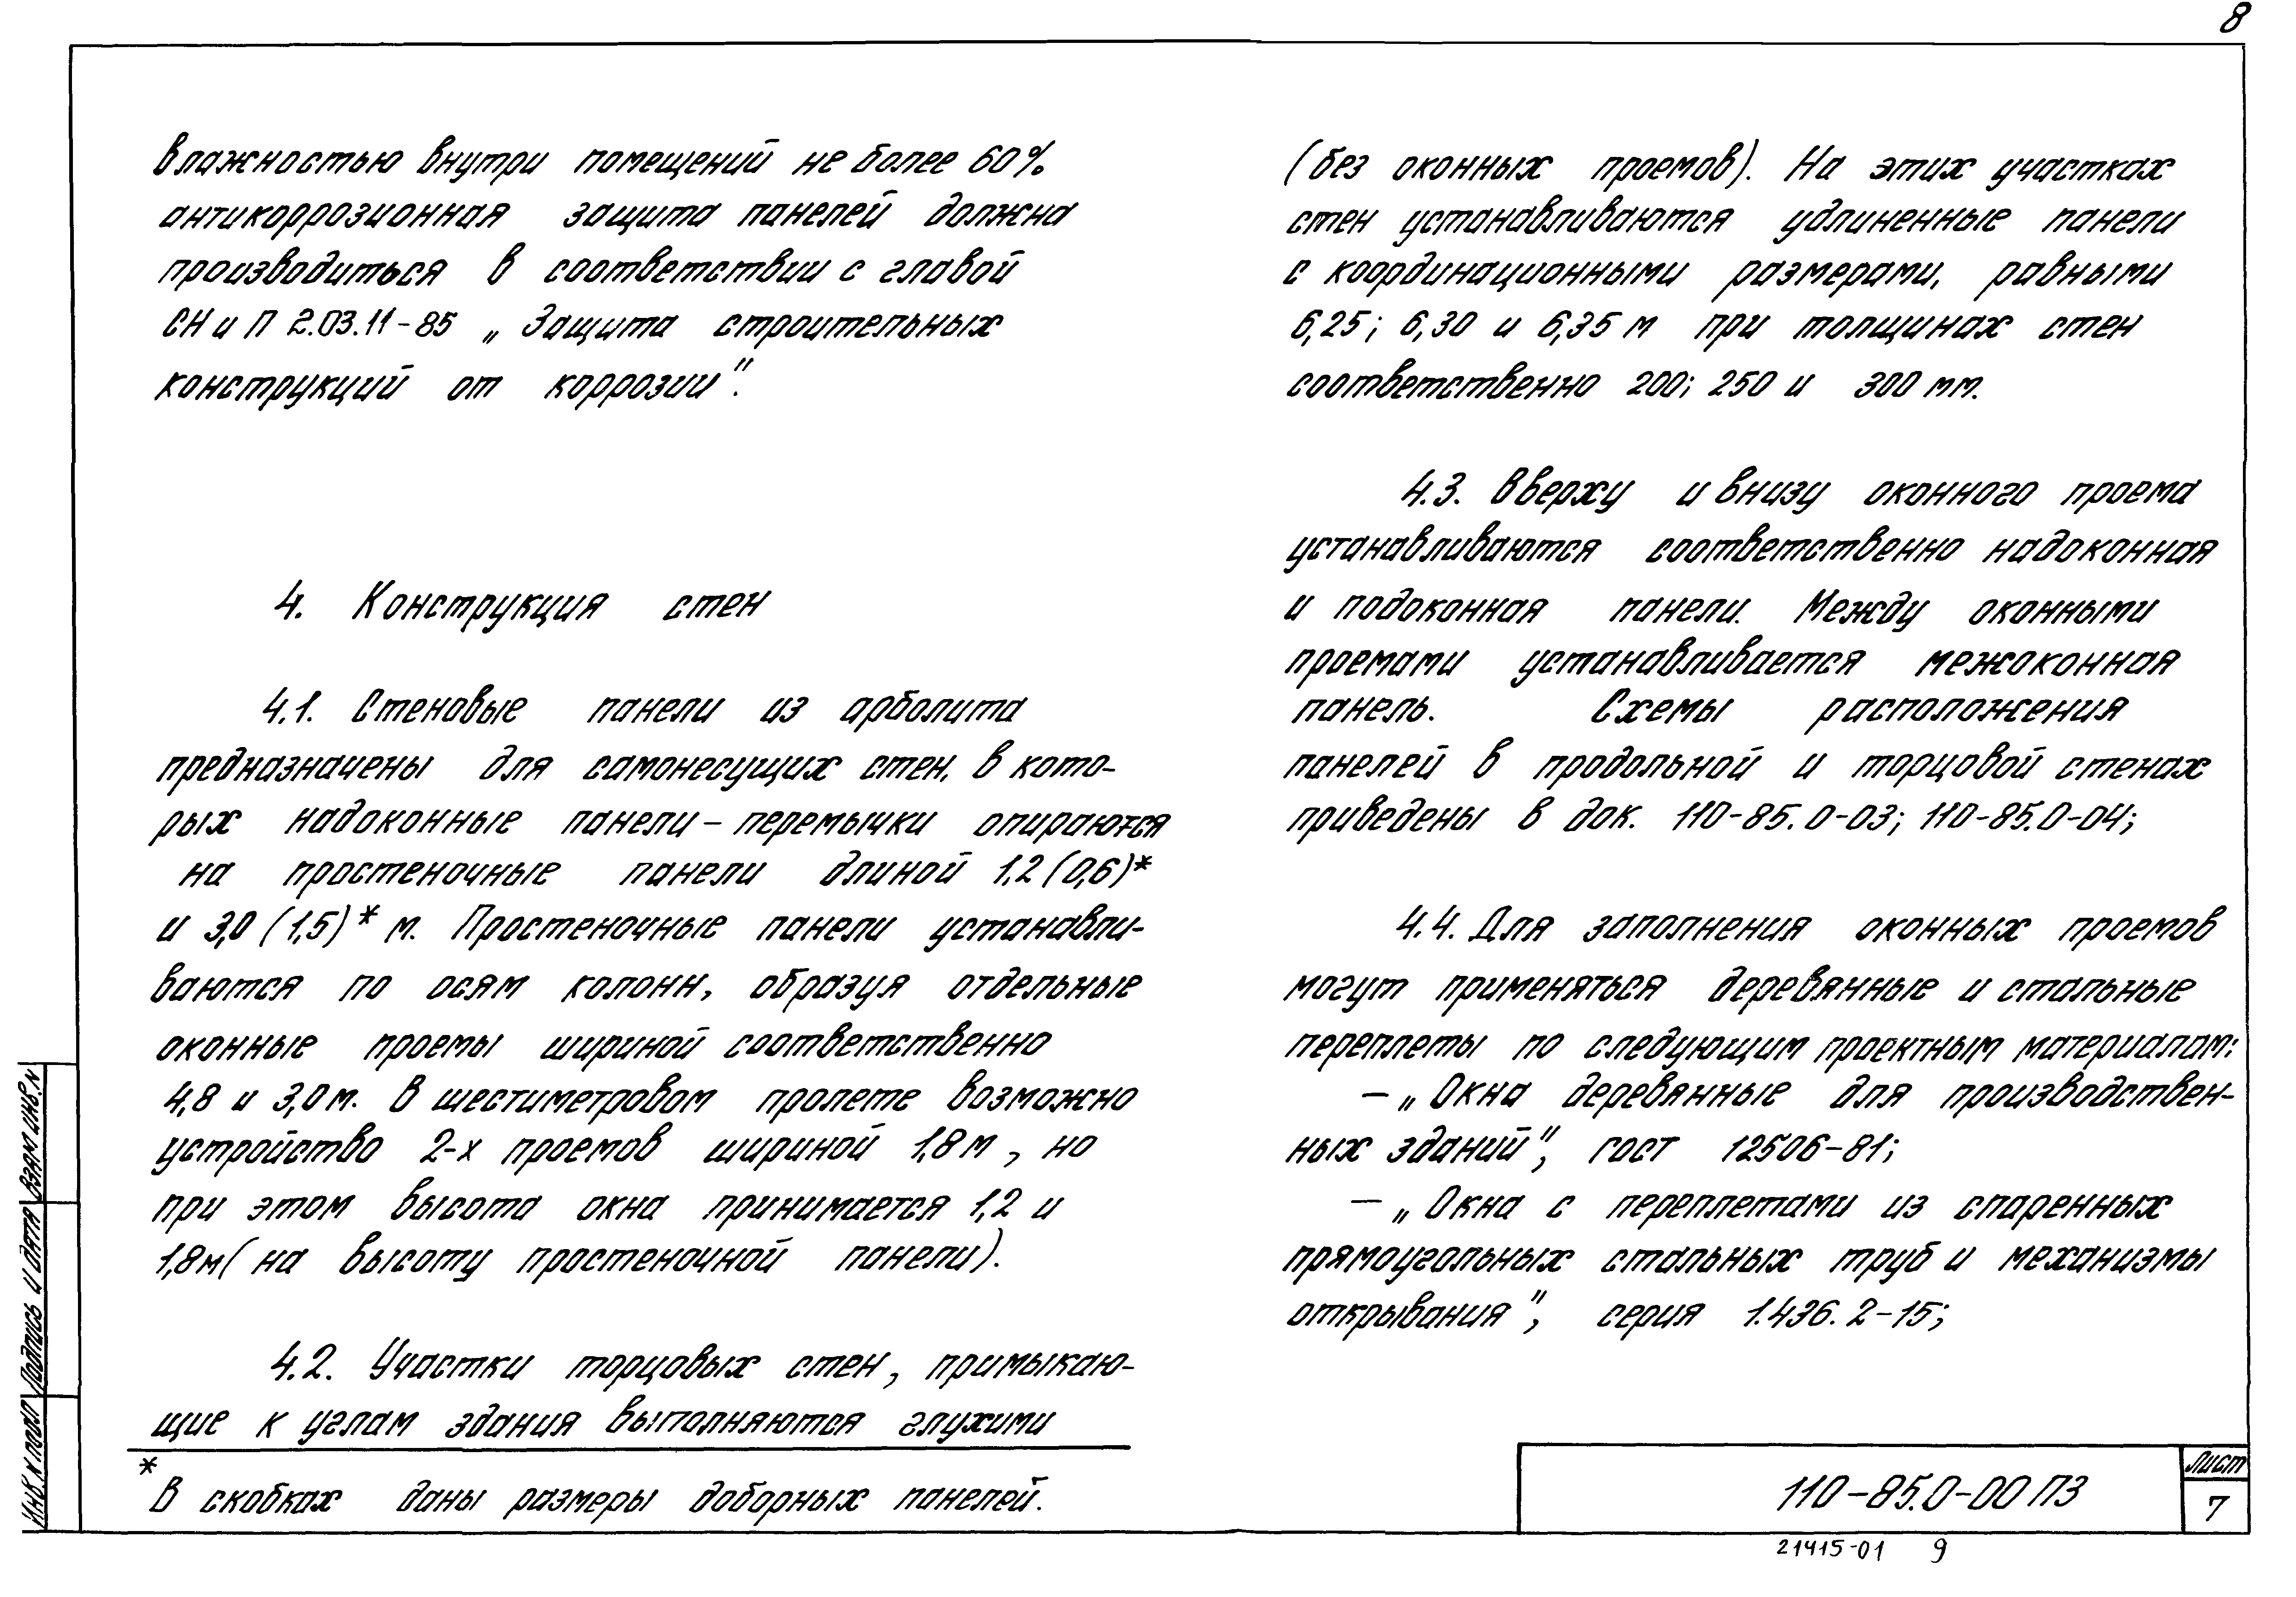 8
влажностью внутри помещений не более 60%
антикоррозионная защита панелей должна
производиться в соответствии с главой
СНиП 2.03.11-85 „Защита строительных
конструкций от коррозии".
4. Конструкция стен
4.1. Стеновые панели из арболита
предназначены для самонесущих стен, в кото-
рых надоконные панели - перемычки опираются
на простеночные панели длиной 1,2 (0,6)*
и 3,0 (1,5)* м. Простеночные панели устанавли-
ваются по осям колонн, образуя отдельные
оконные проемы шириной соответственно
4,8 и 3,0 м. В шестиметровом пролете возможно
устройство 2-х проемов шириной 1,8 м, но
при этом высота окна принимается 1,2 и
1,8 м (на высоту простеночной панели).
4.2. Участки торцовых стен, примыкаю-
щие к углам здания выполняются глухими
* В скобках даны размеры доборных панелей.
(без оконных проемов). На этих участках
стен устанавливаются удлиненные панели
с координационными размерами, равными
6,25; 6,30 и 6,35 м при толщинах стен
соответственно 200; 250 и 300 мм.
4.3. Вверху и внизу оконного проема
устанавливаются соответственно надоконная
и подоконная панели. Между оконными
проемами устанавливается межоконная
панель. Схемы расположения
панелей в продольной и торцовой стенах
приведены в док. 110-85.0-03; 110-85.0-04;
4.4. Для заполнения оконных проемов
могут применяться деревянные и стальные
переплеты по следующим проектным материалам:
— „Окна деревянные для производствен-
ных зданий", ГОСТ 12506-81;
— „Окна с переплетами из спаренных
прямоугольных стальных труб и механизмы
открывания", серия 1.436.2-15;
Инв. N подл
Подпись и дата
Взам инв. N
110-85.0-00 ПЗ
Лист
7
21415-01 9